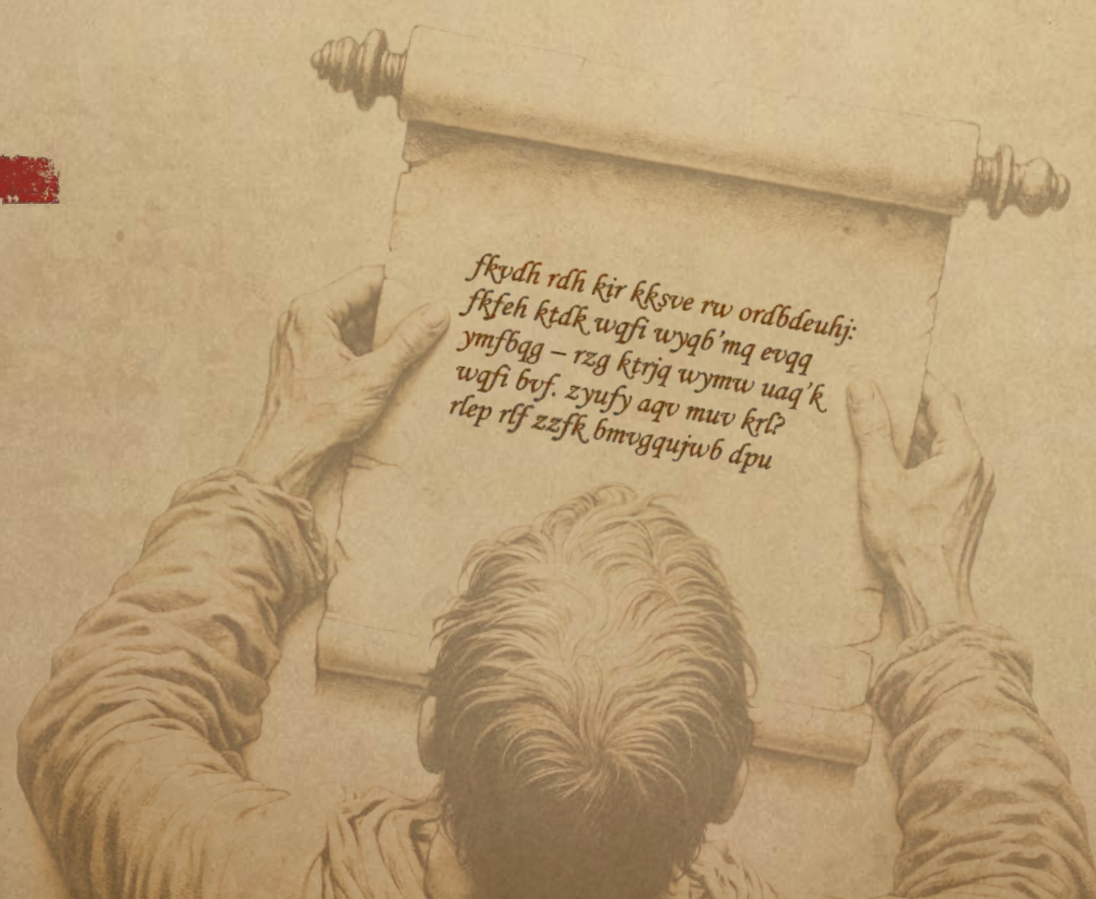 fkvdh rdh kir kksve rw ordbdeuhj:
fkfeh ktdk wqfi wyqb'mq evqq
ymfbqg – rzg ktrjq wymw uaq'k
wqfi bvf. zyufy aqv muv krl?
rlep rlf zzfk bmvgqujwb dpu